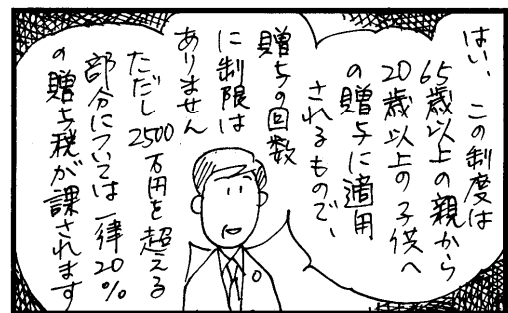 はい、この制度は
65歳以上の親から
20歳以上の子供へ
の贈与に適用
されるもので、
贈与の回数
に制限は
ありません
ただし2500万円を超える
部分については一律20%
の贈与税が課されます